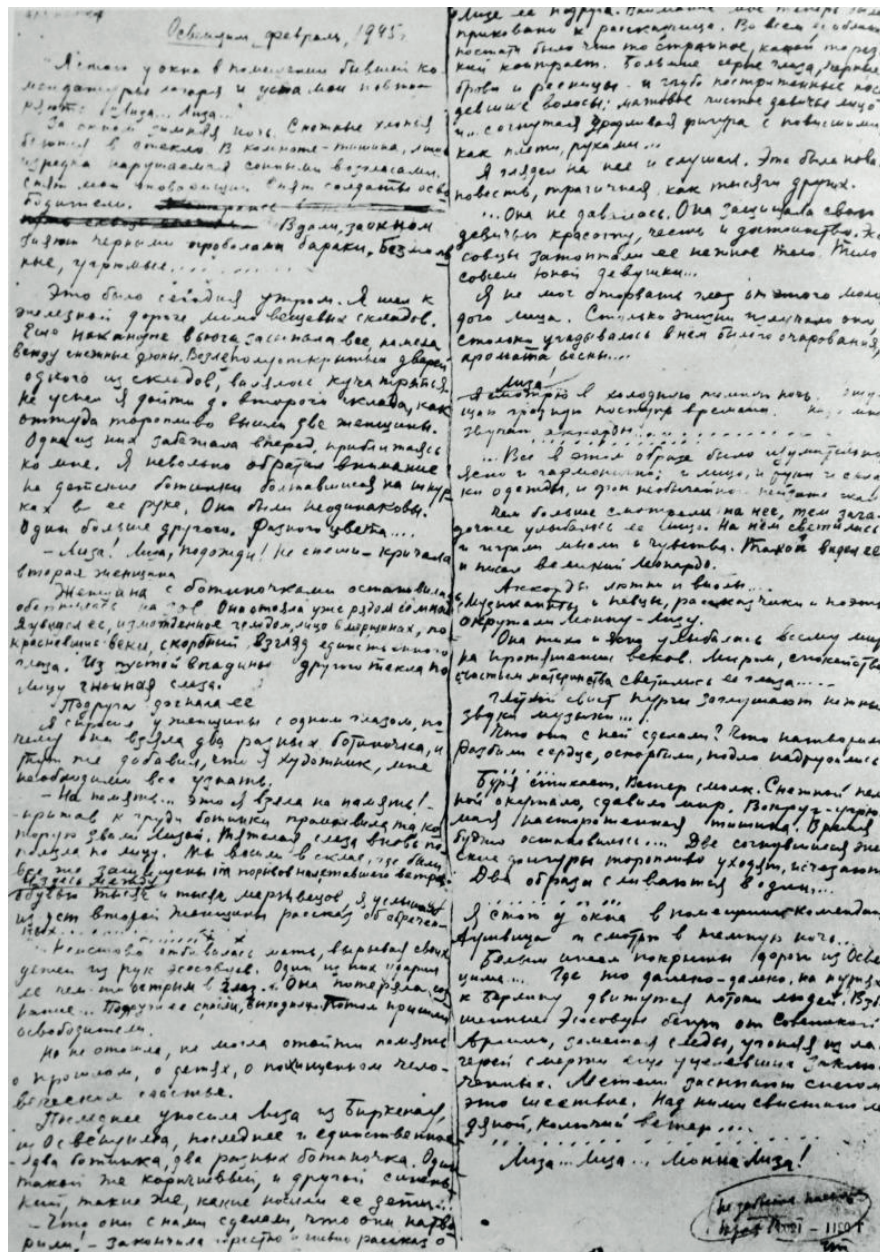 Освенцим, февраль, 1945.
"Я стою у окна в помещении бывшей ко-
мендатуры лагеря и уста мои повто-
ряют: "Лиза... Лиза..."
За окном зимняя ночь. Снежные хлопья
бьются в стекло. В комнате – тишина, лишь
изредка нарушаемая сонными возгласами.
Спят мои Спят солдаты осво-
бодители.
Вдали, за окном
зияют черными провалами бараки, безмолв-
ные, угрюмые...........
Это было сегодня утром. Я шел к
железной дороге мимо вещевых складов.
Еще накануне вьюга засыпала все, намела
всюду снежные дюны. Возле полуоткрытых дверей
одного из складов, валялось куча тряпья.
Не успел я дойти до второго склада, как
оттуда торопливо вышли две женщины.
Одна из них забежала вперед, приближаясь
ко мне. Я невольно обратил внимание
на детские ботинки болтавшиеся на шнур-
ках в ее руке. Они были неодинаковы.
Один больше другого. Разного цвета....
– Лиза! Лиза, подожди! Не спеши – кричала
вторая женщина
Женщина с ботиночками остановилась
на зов. Она стояла уже рядом со мной.
Я увидел ее, изможденное лицо в морщинах, по-
красневшие веки, скорбный взгляд единственного
глаза. Из пустой впадины другого текла по
лицу гнойная слеза.
Подруга догнала ее
Я спросил у женщины с одним глазом, по-
чему она взяла два разных ботиночка, и
тут же добавил, что я художник, мне
необходимо все узнать.
– На память... это я взяла на память! –
– прижав к груди ботинки промолвила та, ко-
торую звали Лизой. Тяжелая слеза вновь по-
ползла по лицу. Мы вошли в склад, где были
все же защищены от порывов налетавшего ветра.
Здесь между
обувью тысяч и тысяч мертвецов, я услышал
из уст второй женщины рассказ об обречен-
ных...........
"Неистово отбивалась мать, вырывая своих
детей из рук эсэсовцев. Один из них ударил
ее чем-то острым в глаз... Она потеряла соз-
нание... Подруги ее спасли, выходили. Потом пришли
освободители.
Но не отошла, не могла отойти память
о прошлом, о детях, о похищенном чело-
веческом счастье.
Последнее уносила Лиза из Биркенау,
из Освенцима, последнее и единственное
– два ботинка, два разных ботиночка. Один
такой же коричневый, и другой синень-
кий, такие же, какие носили ее дети...
– Что они с нами сделали, что они натво-
рили! – закончила рассказ о
Лизе ее подруга. Внимание мое теперь было
приковано к рассказчице. Во всем ее облике
поистине было что то странное, какой то рез-
кий контраст. Большие серые глаза, черные
брови и ресницы и глубо постриженные посе-
девшие волосы; матовое чистое девичье лицо
и... согнутая дряхлая фигура с повисшими
как плети, руками...
Я глядел на нее и слушал. Это была новая
повесть, трагичная, как тысячи других.
...Она не давалась. Она защищала свою
девичью красоту, честь и достоинство. Эсэ-
совцы затоптали ее нежное тело. Тело
совсем юной девушки...
Я не мог оторвать глаз от этого моло-
дого лица. Столько жизни излучало оно,
столько угадывалось в нем былого очарования,
аромата весны....
Лиза!
Я смотрю в холодную темную ночь.
поступь времени.
звучат аккорды...
...Все в этом образе было изумительно
ясно и гармонично; и лицо, и руки и склад-
ки одежды, и фон необычайного пейзажа
Чем больше смотрели на нее, тем зага-
дочнее улыбалось ее лицо. На нём светились
и играли мысли и чувства. Такой видел ее
и писал великий Леонардо.
Аккорды лютни и виолы....
Музыканты и певцы, рассказчики и поэты
окружали Монну-Лизу.
Она тихо и ясно улыбалась всему миру
на протяжении веков. Миром, спокойствием
счастьем материнства светились ее глаза.....
свист пурги заглушают нежные
звуки музыки...
Что они с ней сделали? Что натворили?
Разбили сердце, оскорбили, подло надругались
Буря стихает. Ветер смолк. Снежной пеле-
ной окутало, сдавило мир. Вокруг – угрю-
мая настороженная тишина. Время
будто остановилось.... Две согнувшиеся жен-
ские фигуры торопливо уходят, исчезают.
Два образа сливаются в один....
Я стою у окна в помещении комендатуры
Аушвица и смотрю в темную ночь...
Белым инеем покрыты дороги из Осве-
цима... Где то далеко-далеко, на путях
к Берлину движутся потоки людей. Взбе-
шенные Эсэсовцы бегут от Советской
Армии, заметая следы, угоняя из ла-
герей смерти еще уцелевших заклю-
ченных. Метели засыпают снегом
это шествие. Над ними свистит ле-
дяной, колючий ветер....
Лиза... Лиза..., Монна Лиза!